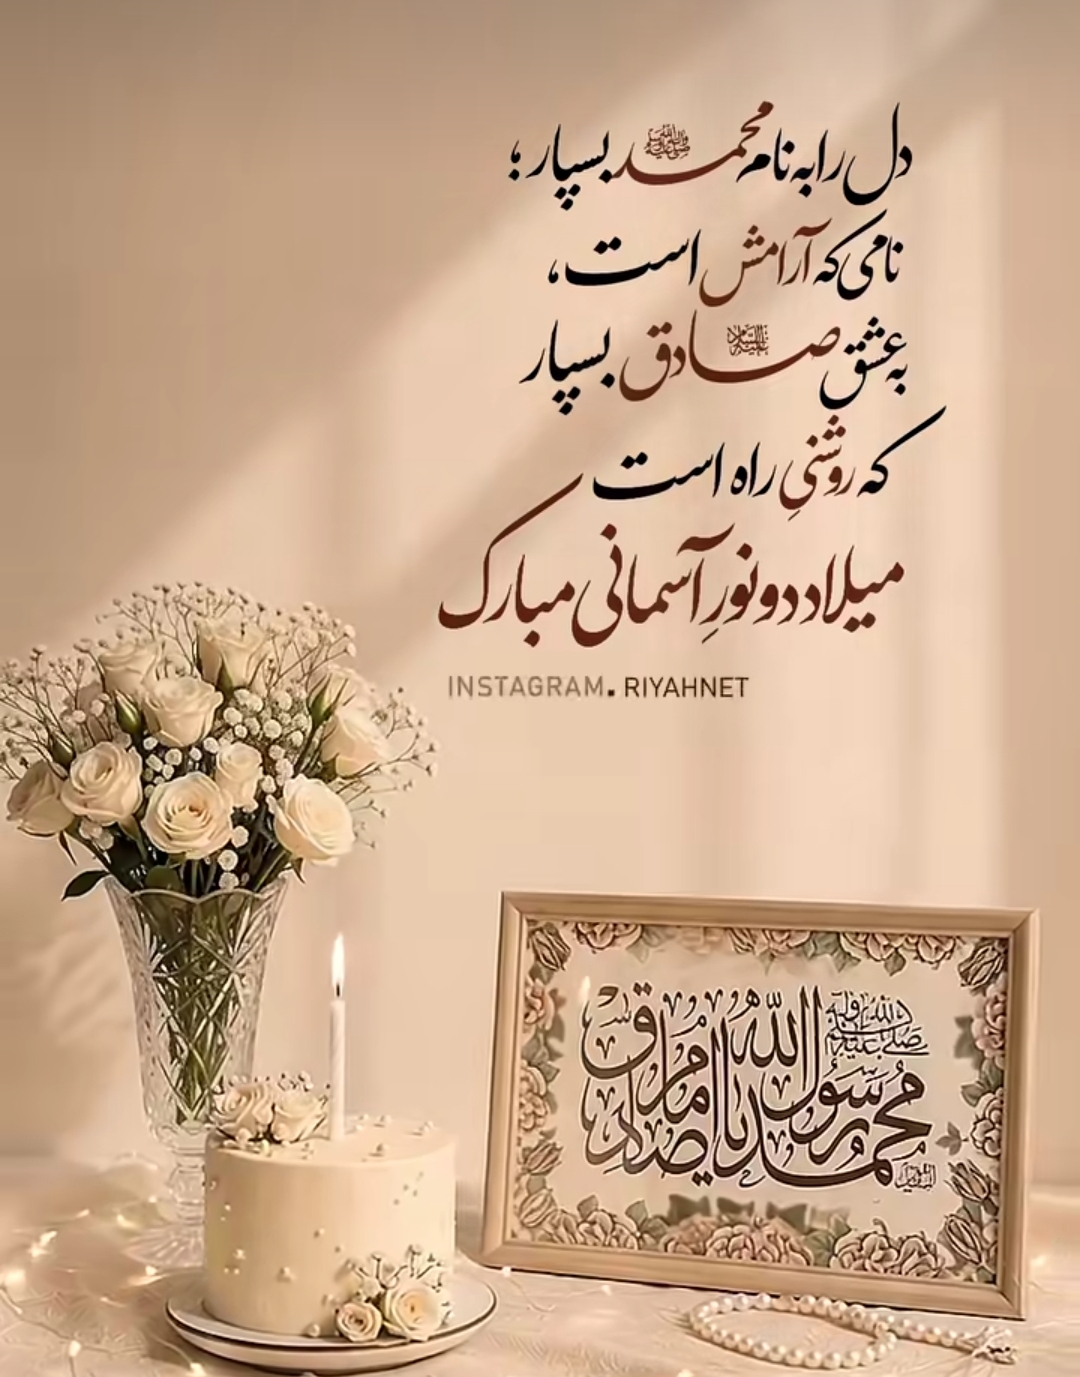 دل را به نام محمد ﷺ بسپار؛
نامی که آرامش است،
به عشق صادق علیه‌السلام بسپار
که روشنیِ راه است
میلاد دو نورِ آسمانی مبارک
INSTAGRAM. RIYAHNET
محمد رسول الله
صلی الله علیه وآله
یا امام صادق